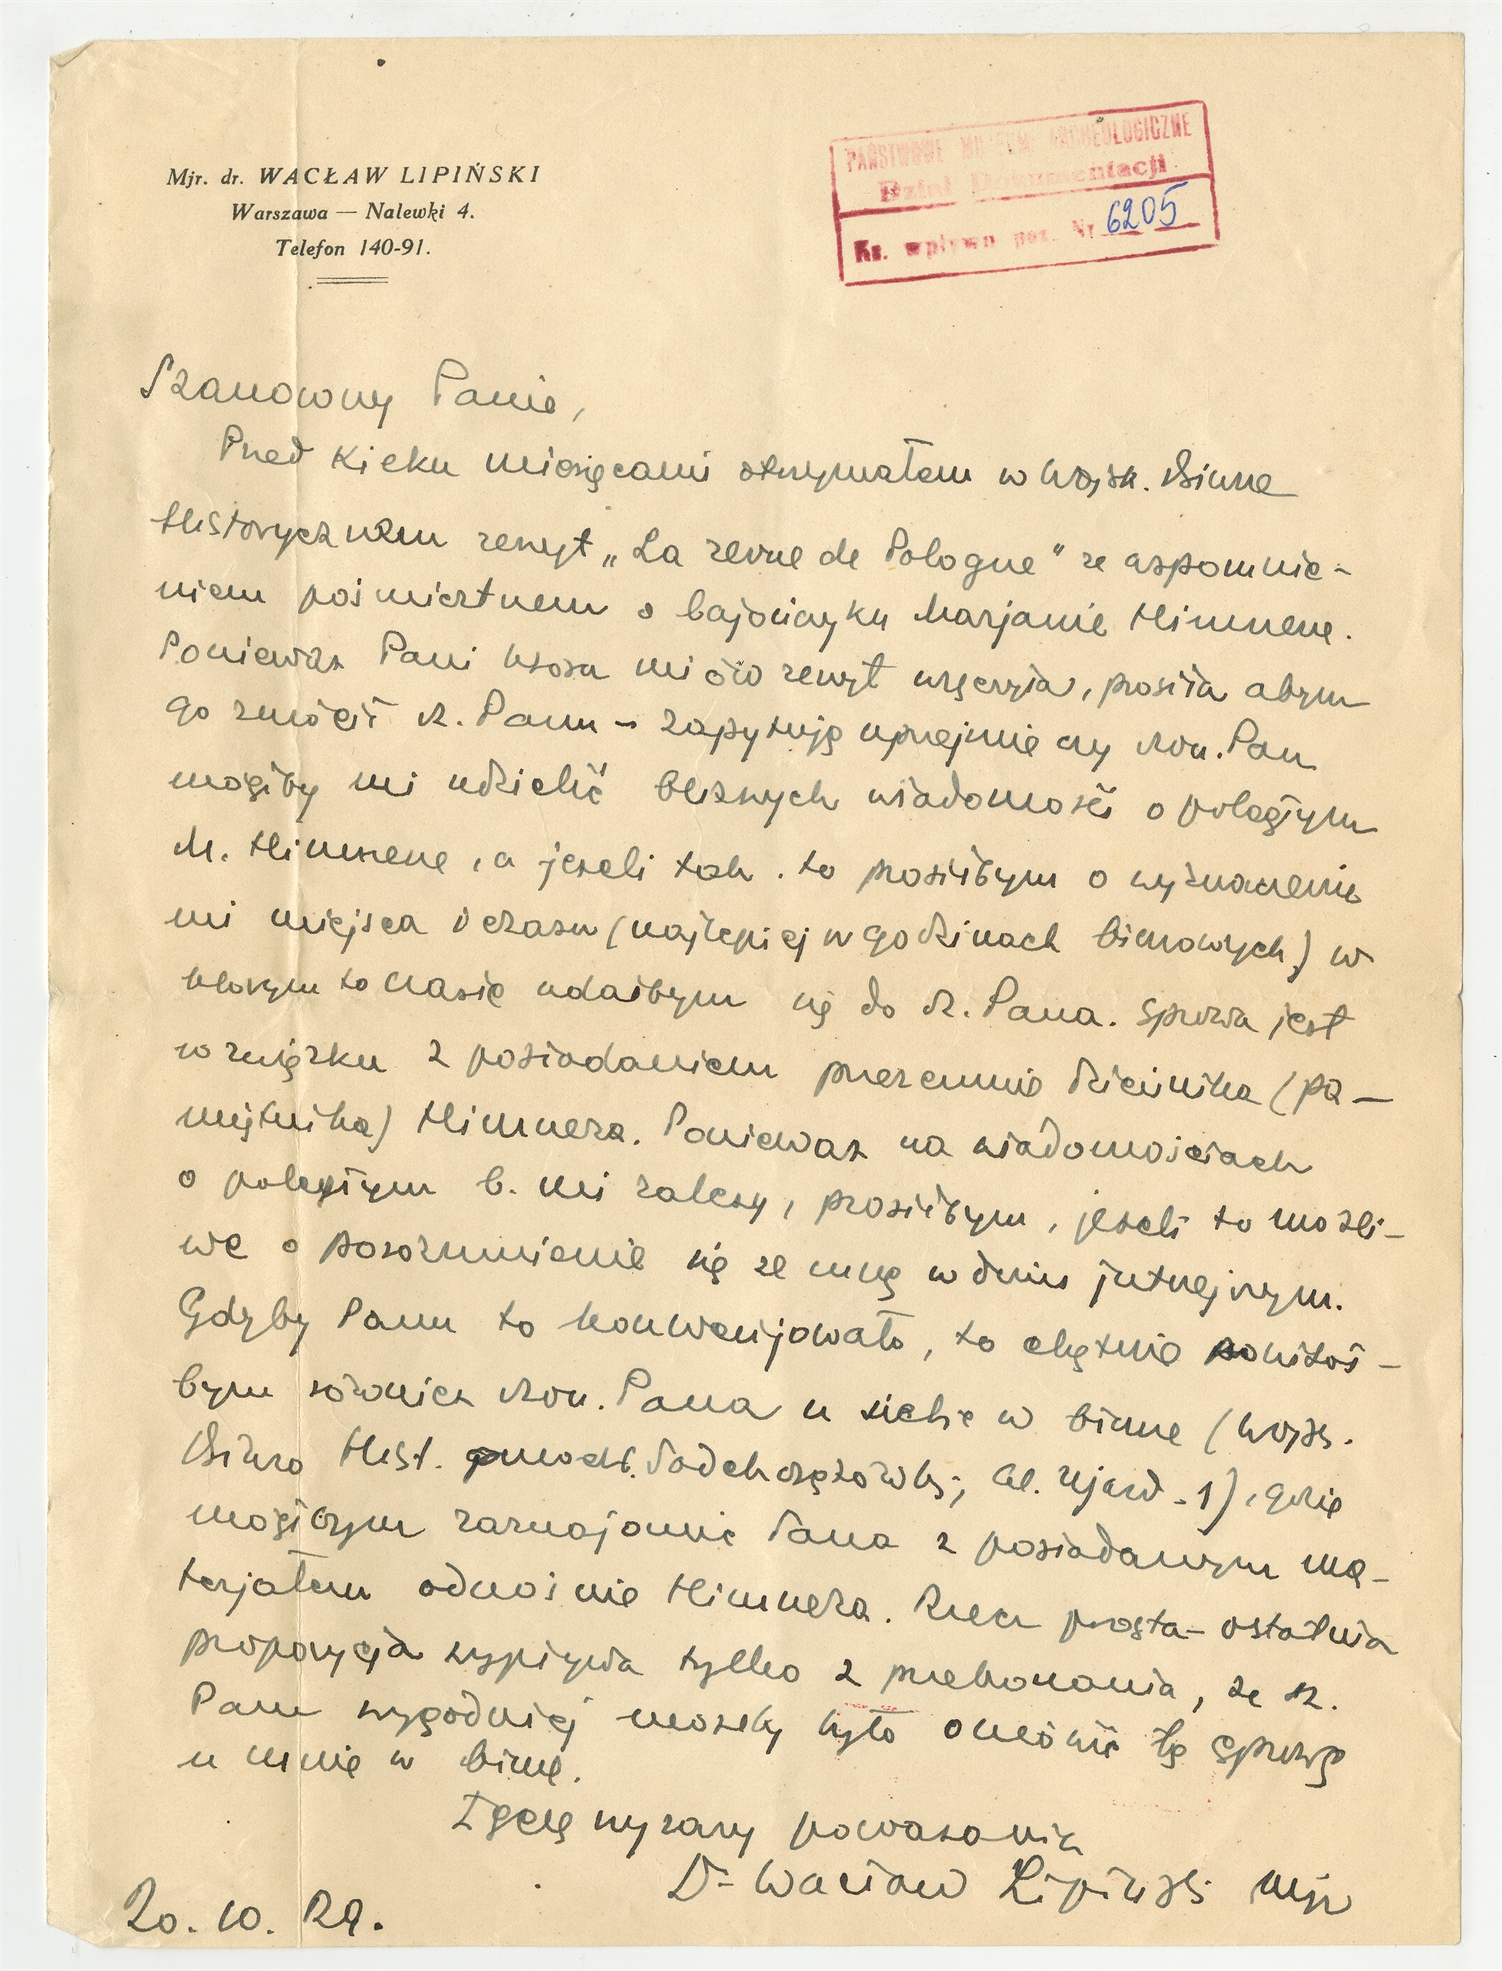 Mjr. dr. WACŁAW LIPIŃSKI
Warszawa — Nalewki 4.
Telefon 140-91.
PAŃSTWOWE MUZEUM ARCHEOLOGICZNE
Dział Dokumentacji
Ks. wpływu poz. Nr 6205
Szanowny Panie,
Przed kilku miesięcami otrzymałem w Wojsk. Biurze
Historycznem zeszyt „La revue de Pologne" ze wspomnie-
niem pośmiertnem o bajończyku Marjanie Himnerze.
Ponieważ Pani która mi ów zeszyt wręczyła, prosiła abym
go zwrócił Sz. Panu – zapytuję uprzejmie czy Szan. Pan
mógłby mi udzielić bliższych wiadomości o poległym
M. Himnerze, a jeżeli tak. to prosiłbym o wyznaczenie
mi miejsca i czasu (najlepiej w godzinach biurowych) w
którym to czasie udałbym się do Sz. Pana. Sprawa jest
w związku z posiadaniem przezemnie dziennika (pa-
miętnika) Himnera. Ponieważ na wiadomościach
o poległym b. mi zależy, prosiłbym, jeżeli to możli-
we o porozumienie się ze mną w dniu jutrzejszym.
Gdyby Panu to konwenjowało, to chętnie powitał-
bym również Szan. Pana u siebie w biurze (Wojsk.
Biuro Hist. gmach b. Podchorążówki, Al. Ujazd. 1), gdzie
mógłbym zaznajomić Pana z posiadanym ma-
terjałem odnośnie Himnera. Rzecz prosta – ostatnia
propozycja wypływa tylko z przekonania, że Sz.
Panu wygodniej możeby było omówić tę sprawę
u mnie w biurze.
Łączę wyrazy poważania
Dr Wacław Lipiński mjr
20. 10. 29.